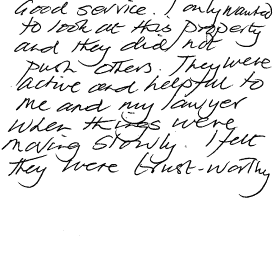 Good service. I only wanted
to look at this property
and they did not
push others. They were
active and helpful to
me and my lawyer
when things were
moving slowly. I felt
they were trust-worthy